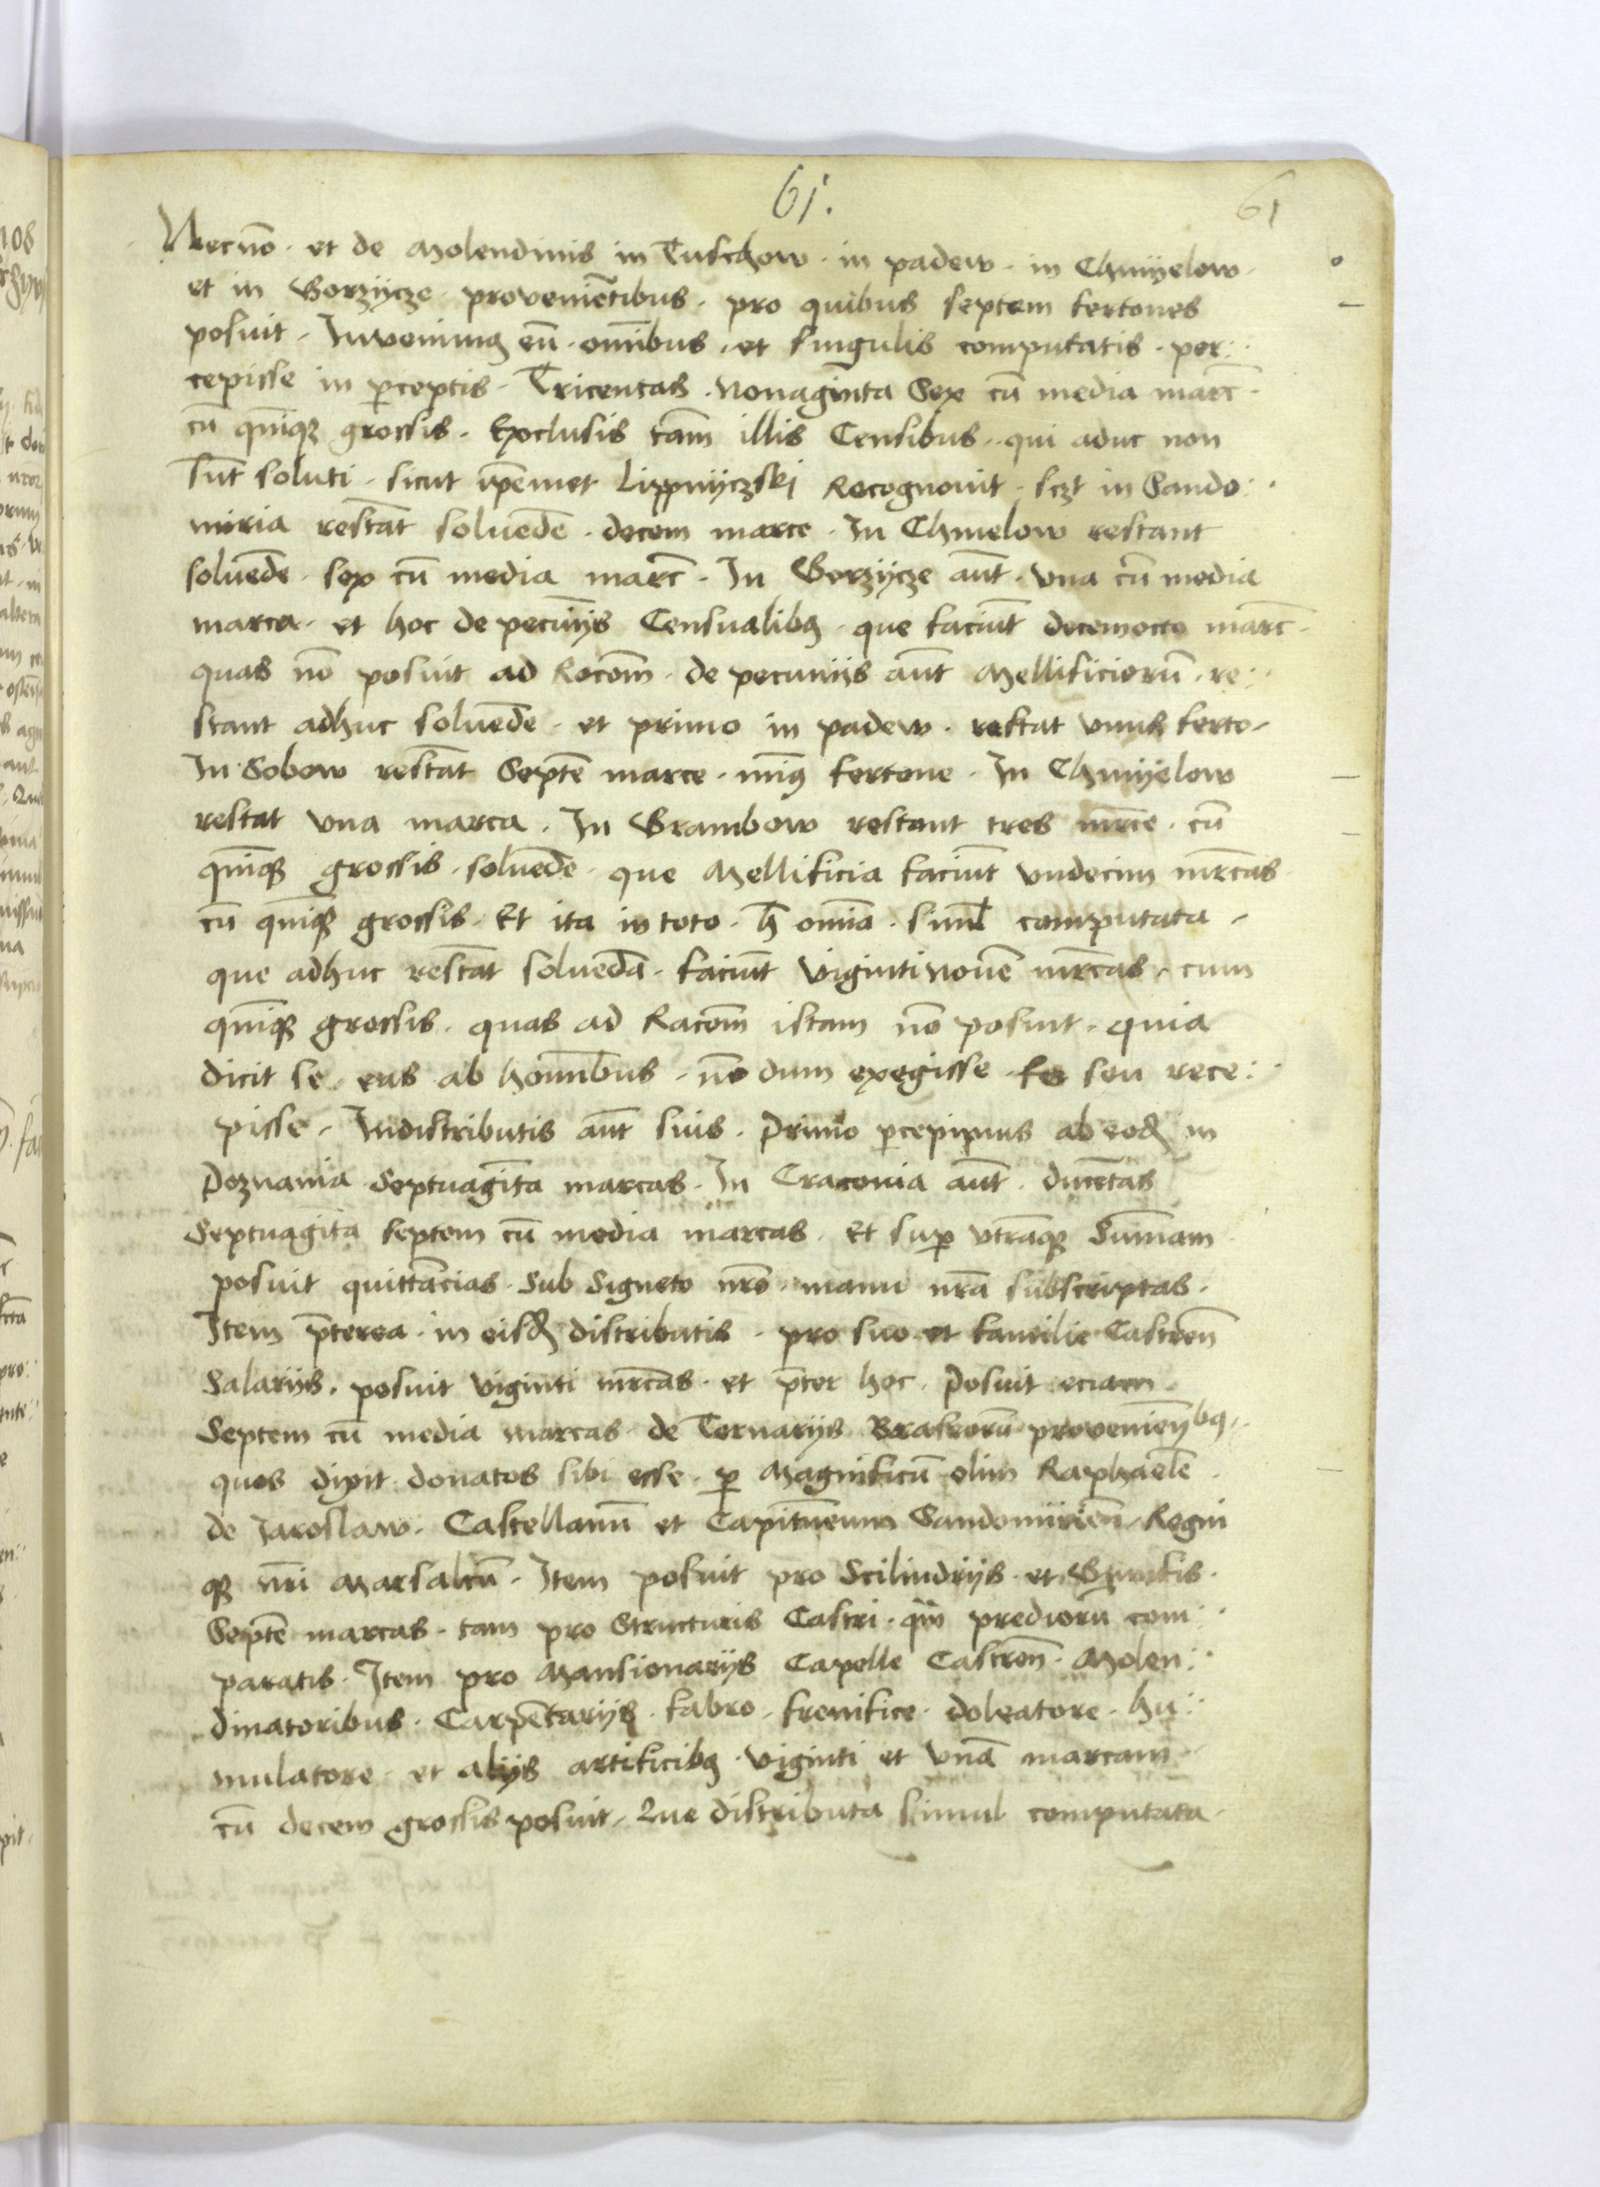 61.
61
Necnō · et de Molendinis in Tuschow · in padew · in Chmyelow ·
et in Gorzÿcze · proveniētibus · pro quibus septem fertones
posuit · Invenimꝰ eū · omībus · et singulis computatis · per:
cepisse in ꝑceptis · Tricentas · Nonagīnta Sex cū media marc̄ ·
cū qnīqꝫ grossis · Exclusis tam̄ illis Censibus · qui aduc non
sūt soluti · sicut ip̄emet Lippnyczski Recognovit · sczt in Sando:
miria restāt soluēde · decem marce · In Chmelow restant
soluēde · sex cū media marc̄ · In Gorzÿcze aūt · vna cū media
marca · et hoc de pecunÿs Censualibꝫ · que faciūt decemocto marc̄ ·
quas nō posuit ad Rōcom̄ · de pecunÿs aūt Mellificiorū · re:
stant adhuc soluēde · et primo in padew · restat vnus ferto ·
In Sobow restāt Septē marce · minꝰ fertone · In Chmÿelow
restat vna marca · In Grambow restant tres mrc̄e · cū
qnīqꝫ grossis · soluēde · que Mellificia faciūt vndecim mrc̄as
cū qnīqꝫ grossis · Et ita in toto · h̄ omīa · siml̄ computata ·
que adhuc restāt soluēda · faciūt vigintinovē mrc̄as · cum
qnīqꝫ grossis · quas ad Racom̄ istam nō posuit · quia
dicit se · eas ab homībus · nō dum exegisse · seu rece:
pisse · Indistributis aūt suis · Primo ꝑcepimus ab eodꝫ in
Poznania Septuagīta marcas · In Cracovia aūt · ducētas
Septuagīta septem cū media marcas · et suꝑ vtrāqꝫ Sūmam
posuit quittācias · sub Signeto nr̄o · manu nr̄a subscriptas ·
Item p̄terea · in eisdꝫ distributis · pro suo et familie Castren̄
Salarÿs · posuit viginti mrc̄as · et p̄ter hoc · Posuit eciam
Septem cū media marcas · de Ternarÿs Braseorū provenieñbꝫ ·
quos dixit donatos sibi esse · ꝑ Magnificū olim Raphaelē
de Jaroslaw · Castellanū et Capitaneum Sandomirien̄ · Regni
qꝫ nr̄i Marsalcū · Item posuit pro Scilindrÿs · et
Septē marcas · tam pro Structuris Castri · qm̄ prediorū com:
paratis · Item pro Mansionarÿs Capelle Castren̄ · Molen:
dinatoribus · Carpētarÿs · fabro · frenifice · doleatore · hu:
mulatore · et alÿs artificibꝫ · viginti et vnā marcam
cū decem grossis posuit · Que distributa simul computata ·